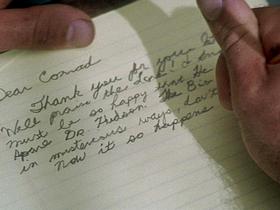 Dear Conrad
Thank you for your
Well praise the Lord! I
must be so happy that the
Dr. Hudson. The
in misterous ways, don't
Now it so happens